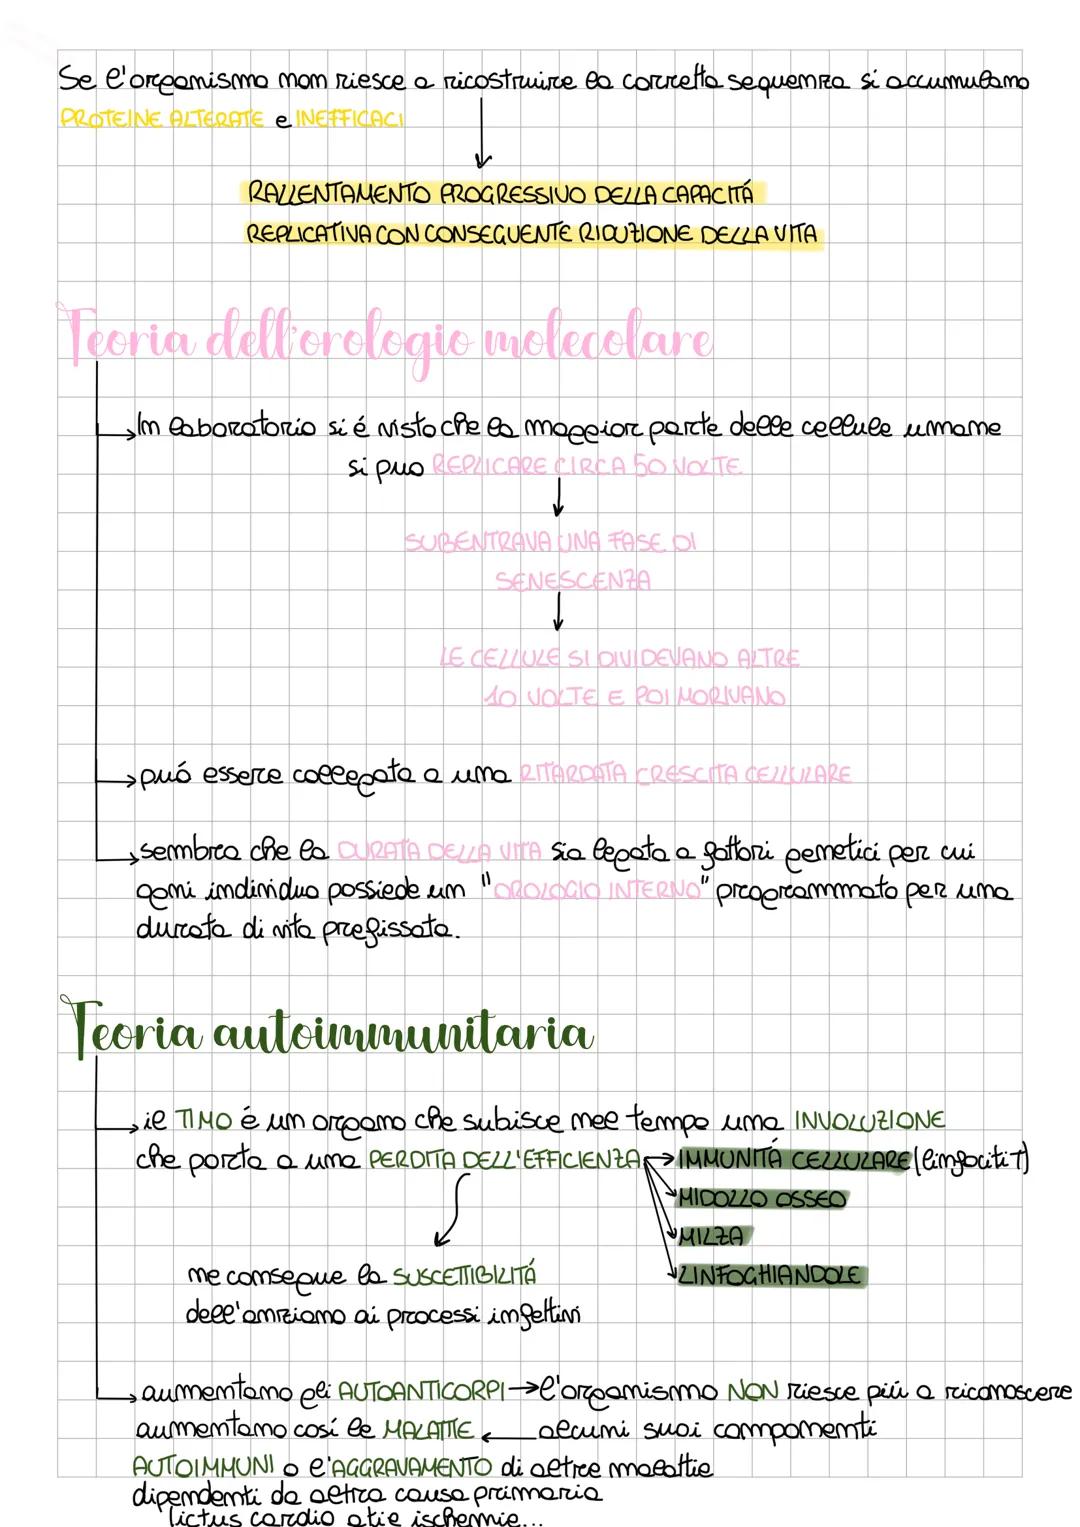 Se l'organismo non riesce a ricostruire la corretta sequenza si accumulano
PROTEINE ALTERATE e INEFFICACI
RALLENTAMENTO PROGRESSIVO DELLA CAPACITÁ
REPLICATIVA CON CONSEGUENTE RIDUZIONE DELLA VITA
Teoria dell'orologio molecolare
In laboratorio si é visto che la maggior parte delle cellule umane
si puo REPLICARE CIRCA 50 VOLTE
SUBENTRAVA UNA FASE DI
SENESCENZA
LE CELLULE SI DIVIDEVANO ALTRE
10 VOLTE E POI MORIVANO
puó essere collegata a una RITARDATA CRESCITA CELLULARE
sembra che la DURATA DELLA VITA sia legata a fattori genetici per cui
ogni individuo possiede un "OROLOGIO INTERNO" programmato per una
durata di vita prefissata.
Teoria autoimmunitaria
il TIMO é un organo che subisce nel tempo una INVOLUZIONE
che porta a una PERDITA DELL'EFFICIENZA → IMMUNITÁ CELLULARE (linfociti T)
MIDOLLO OSSEO
MILZA
LINFOGHIANDOLE
ne consegue la SUSCETTIBILITÁ
dell'anziano ai processi infettivi
aumentano gli AUTOANTICORPI → l'organismo NON riesce piú a riconoscere
aumentano cosí le MALATTIE ← alcuni suoi componenti
AUTOIMMUNI o l'AGGRAVAMENTO di altre malattie
dipendenti da altra causa primaria
ictus cardio atie ischemie...